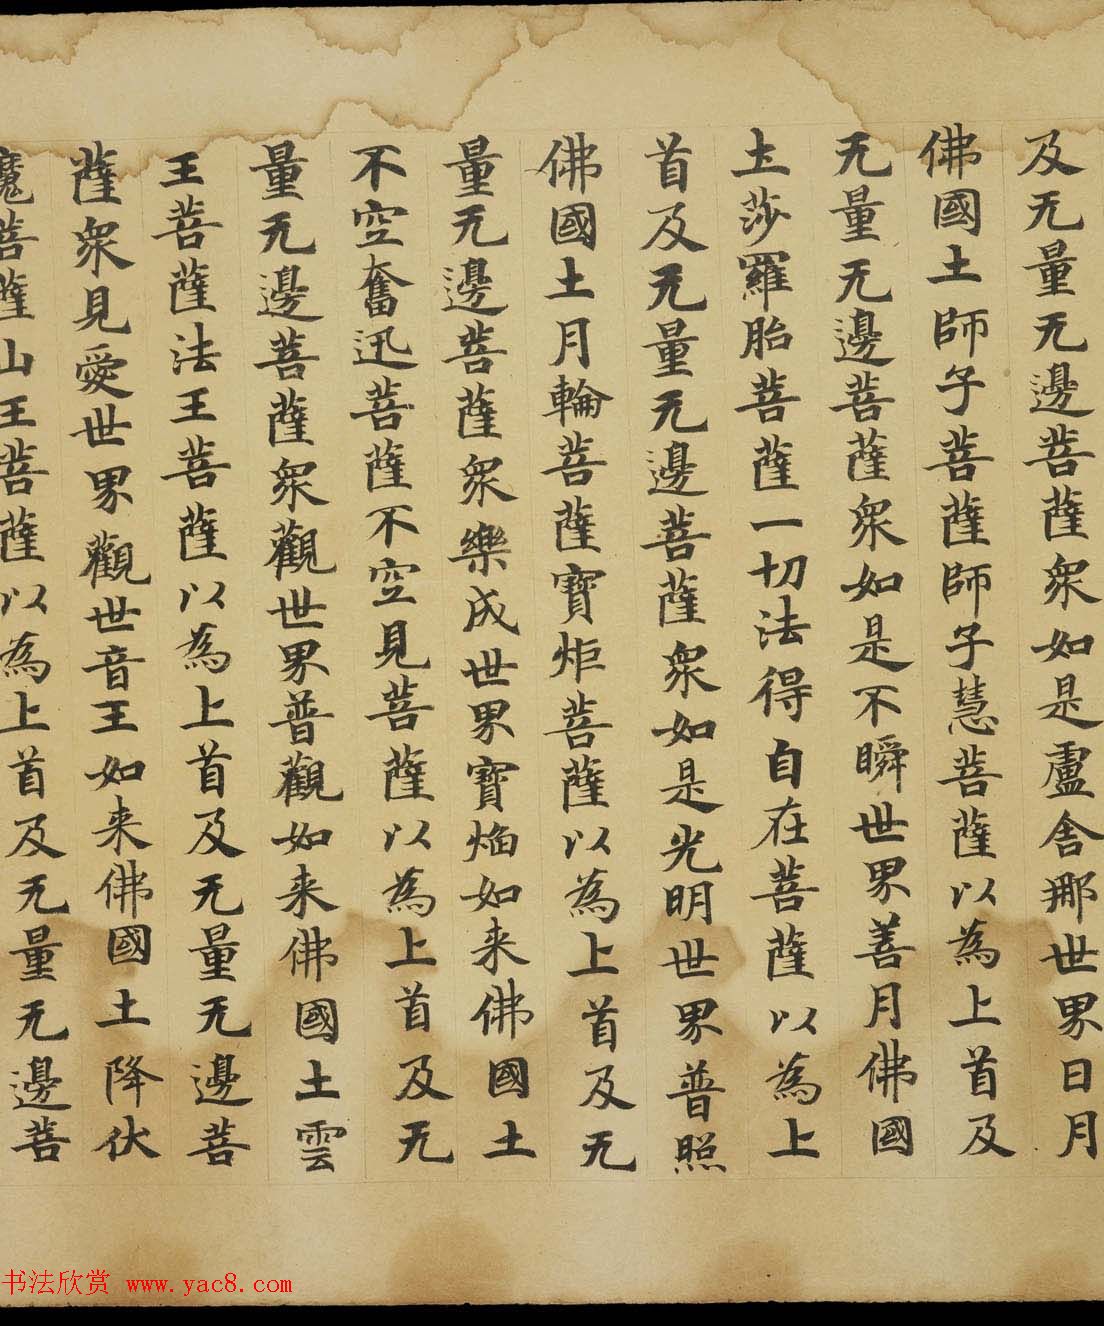 及无量无邊菩薩衆如是盧舍那世界日月
佛國土師子菩薩師子慧菩薩以為上首及
无量无邊菩薩衆如是不瞬世界善月佛國
土莎羅胎菩薩一切法得自在菩薩以為上
首及无量无邊菩薩衆如是光明世界普照
佛國土月輪菩薩寶炬菩薩以為上首及无
量无邊菩薩衆樂成世界寶焰如来佛國土
不空奮迅菩薩不空見菩薩以為上首及无
量无邊菩薩衆觀世界普觀如来佛國土雲
王菩薩法王菩薩以為上首及无量无邊菩
薩衆見愛世界觀世音王如来佛國土降伏
魔菩薩山王菩薩以為上首及无量无邊菩
书法欣赏 www.yac8.com